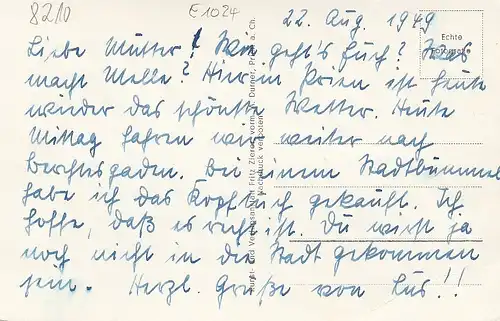 8210 E1024
22. Aug. 1949
Echte
Liebe Mutter! Wie geht's Euch? Was
macht Melle? Hier in Prien ist heute
wieder das schönste Wetter. Heute
Mittag fahren wir weiter nach
Berchtesgaden. Bei einem Stadtbummel
habe ich das Kopftuch gekauft. Ich
hoffe, daß es recht ist. Du wirst ja
noch nicht in die Stadt gekommen
sein. Herzl. Grüße von Eus!!
Kunst- und Verlagsanstalt Fritz Zierus vorm. Durner, Prien a. Ch.
Nachdruck verboten